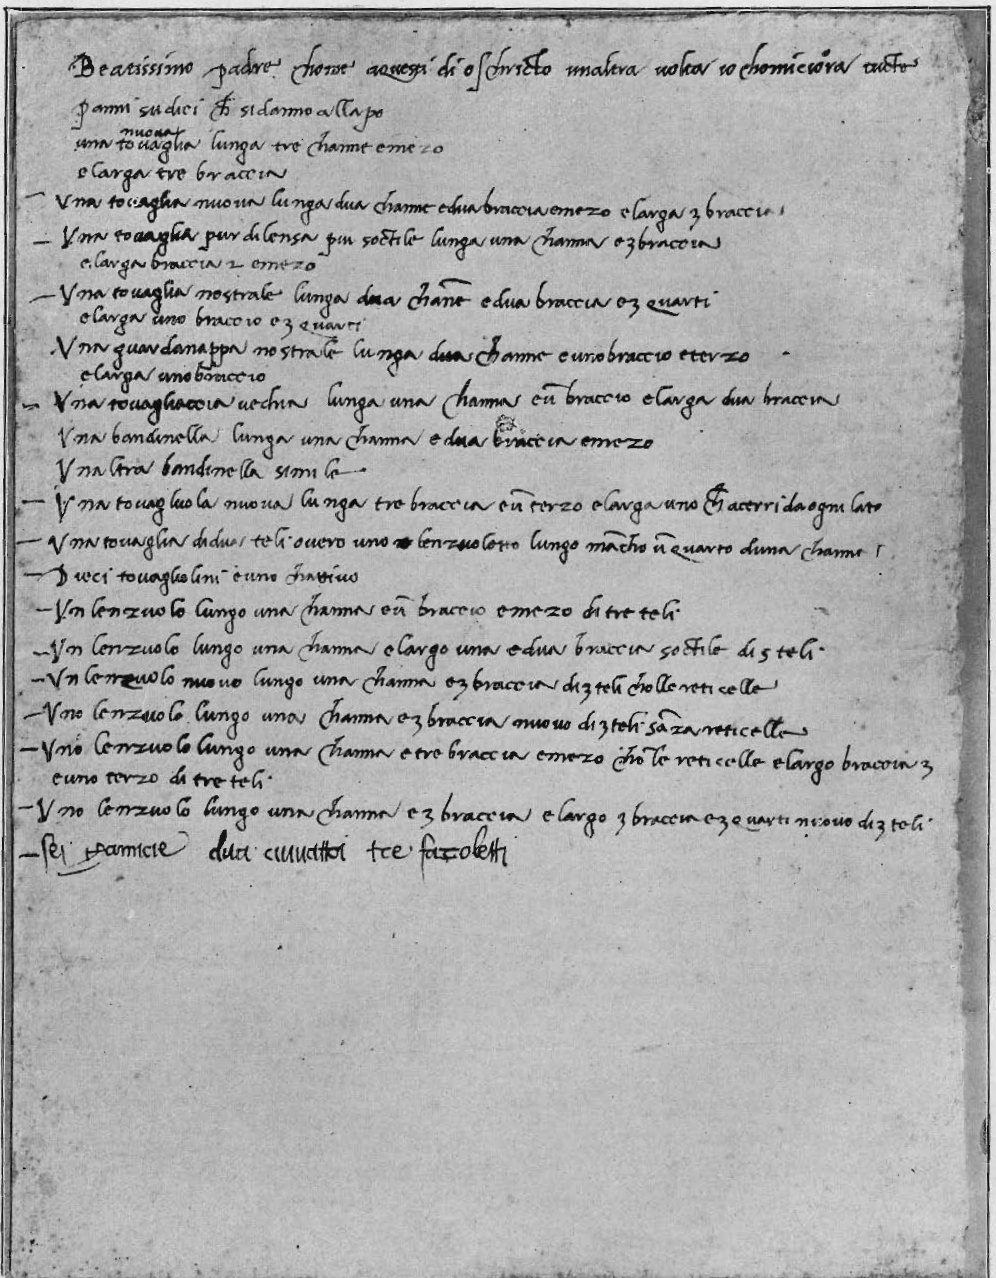 Beatissimo padre home aquesti di o schricto unaltra volta io chominciora tucto
Panni sudici ch si danno alla po
nuova
una tovaglia lunga tre channe e mezo
e larga tre braccia
Una tovaglia nuova lunga dua channe e dua braccia e mezo e larga 3 braccia
– Una tovaglia pur di lensa piu soctile lunga una channa e 3 braccia
e larga braccia 2 e mezo
– Una tovaglia nostrale lunga dua chañe e dua braccia e 3 quarti
e larga uno braccio e 3 quarti
Una guardanappa nostrale lunga dua channe e uno braccio e terzo
e larga uno braccio
– Una tovagliaccia vechia lunga una channa e ū braccio e larga dua braccia
Una bandinella lunga una channa e dua braccia e mezo
Unaltra bandinella simile
– Una tovagliuola nuova lunga tre braccia e ū terzo e larga uno ch acerri da ogni lato
– Una tovaglia di dua teli overo uno lenzuolotto lungo mācho ū quarto duna channa
– Dieci tovagliolini e uno chattivo
– Un lenzuolo lungo una channa e ū braccio e mezo di tre teli
– Un lenzuolo lungo una channa e largo una e dua braccia soctile di 5 teli
– Un lenzuolo nuovo lungo una channa e 3 braccia di 3 teli cholle reticelle
– Uno lenzuolo lungo una channa e 3 braccia nuovo di 3 teli sāza reticelle
– Uno lenzuolo lungo una channa e tre braccia e mezo cholle reticelle e largo braccia 3
e uno terzo di tre teli
– Uno lenzuolo lungo una channa e 3 braccia e largo 3 braccia e 3 quarti nuovo di 3 teli
– Sei camicie dua tre fazoletti